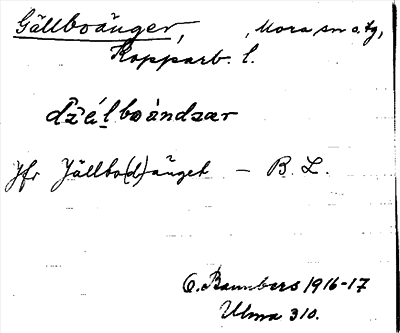 Gällboänger, , Mora sn o. tg,
Kopparb. l.
džélboàndzar
Jfr Jällbo(d)änget – B. L.
O. Bannbers 1916-17
Ulma 310.